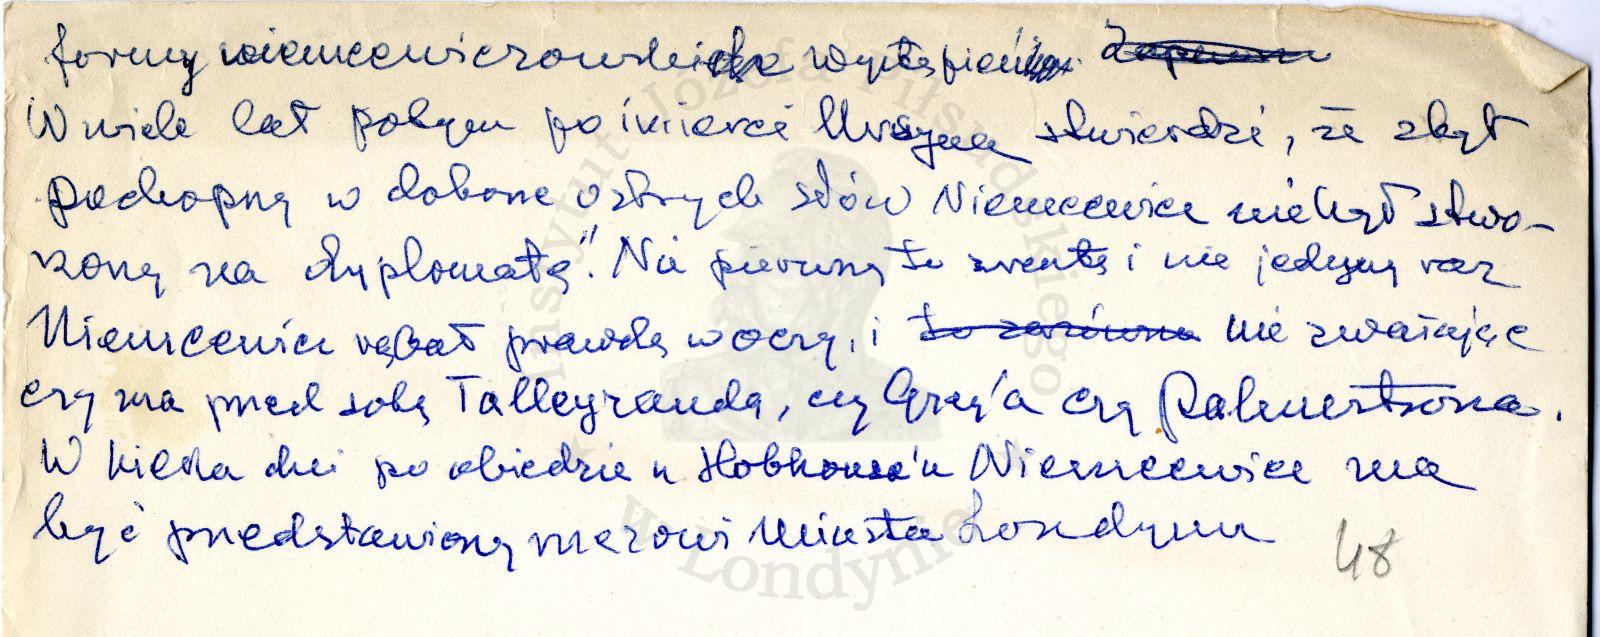 formy niemcewiczowskich wystąpień. Zapewne
W wiele lat potem po śmierci Ursyna stwierdzi, że zbyt
pochopny w doborze ostrych słów Niemcewicz nie był stwo-
rzony na dyplomatę". Nie pierwszy to zresztą i nie jedyny raz
Niemcewicz rąbał prawdę w oczy, i to zarówno nie zważając
czy ma przed sobą Talleyranda, czy Grey'a czy Palmerstona.
W kilka dni po obiedzie u Hobhouse'u Niemcewicz ma
być przedstawiony merowi Miasta Londynu
48
Instytut Józefa Piłsudskiego
w Londynie